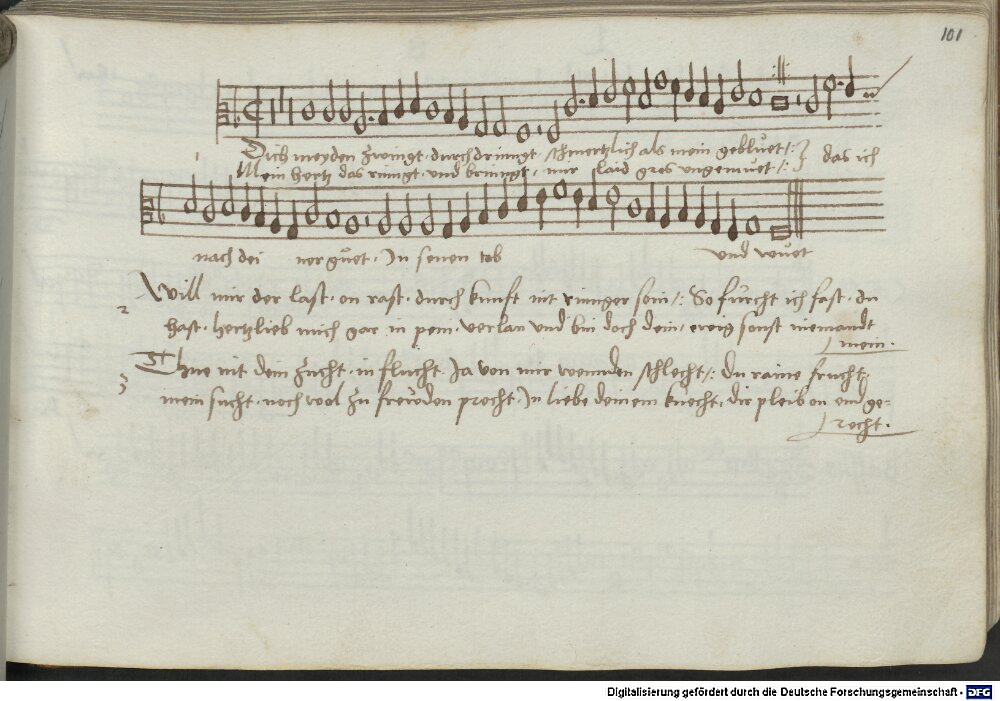 101
Dich meyden zwingt, durchdringt, schmertzlich als mein gebluet /:/ das ich
Mein hertz das ringt, und bringt, mir laid gros ungemuet /:/
nach dei ner guet, In senen tob und wuet
2 Will mir der last, on rast, durch kunft nit ringer sein /: So fürcht ich fast, du
hast, hertzlieb mich gar in pein, verlan und bin doch dein, ewig sonst niemandt
mein.
3 Thue nit dein zucht, in flucht. Ja von mir wennden schlecht /: Du raine frucht,
mein sucht, noch wol zu freuden precht, In liebe deinem knecht, dir pleib on end ge-
recht.
Digitalisierung gefördert durch die Deutsche Forschungsgemeinschaft - DFG